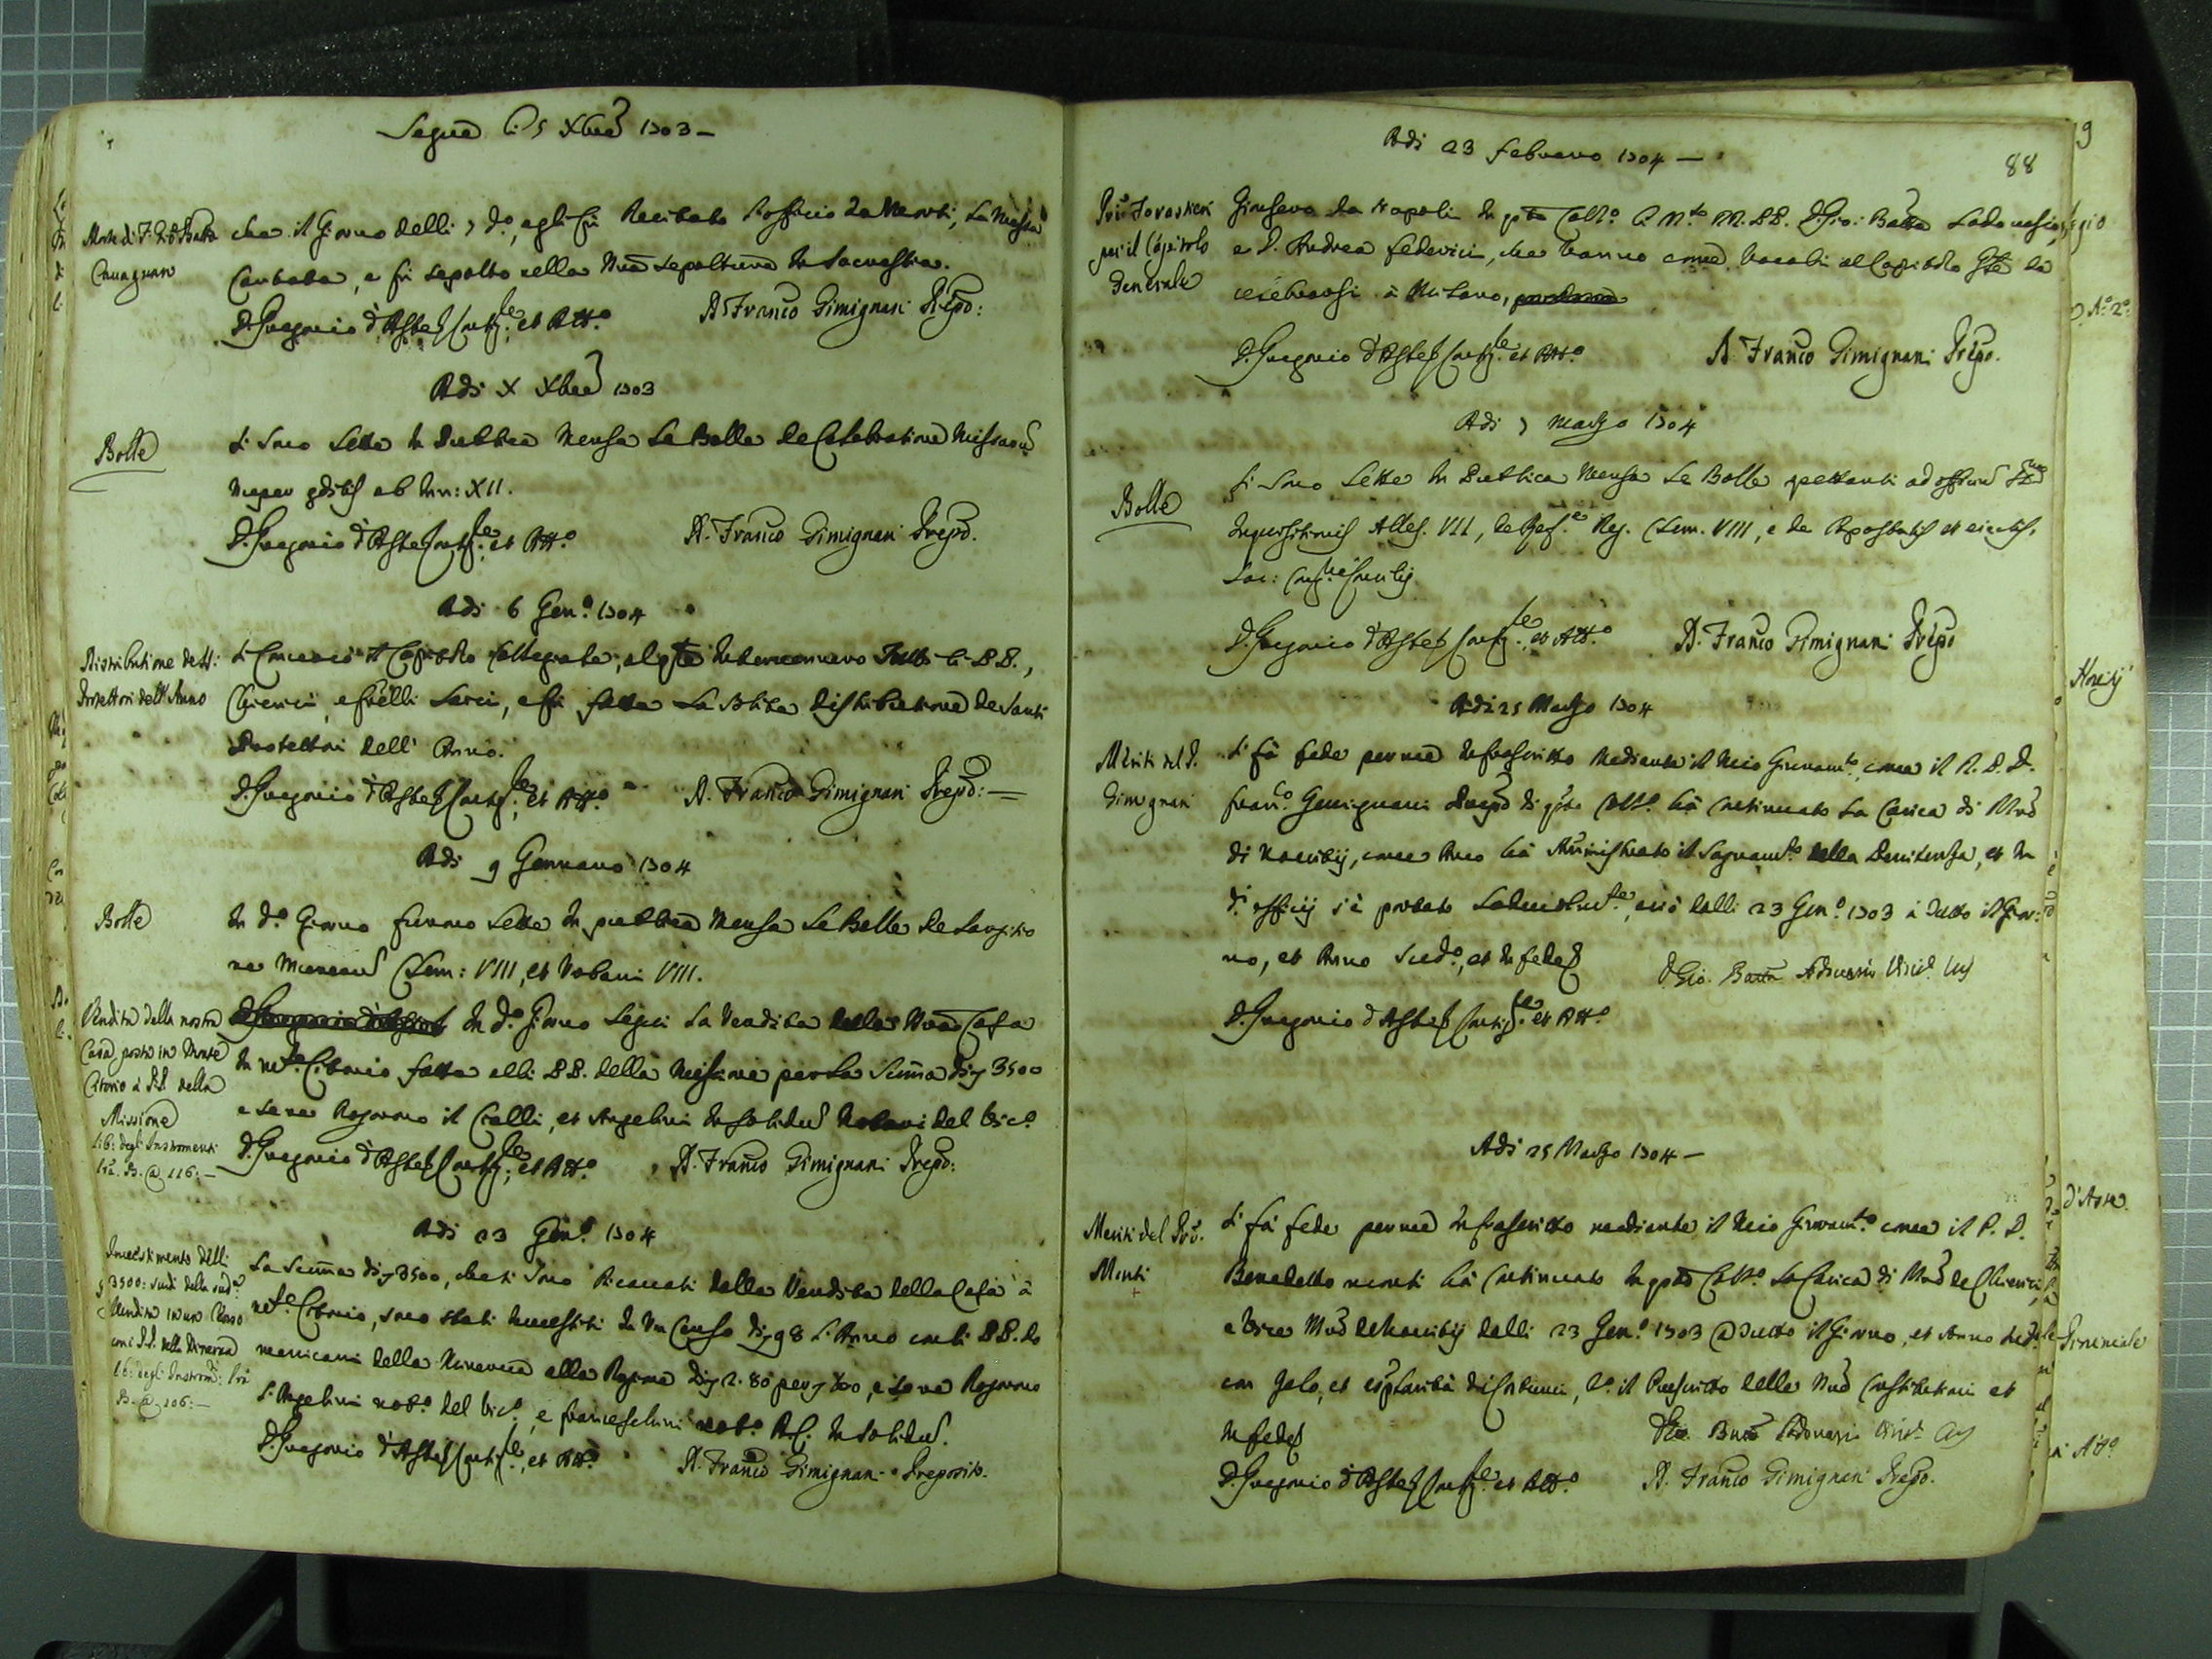 Segue li 5 Xbre 1703 –
Morte di F. Gio: Batta
Canagnari
che il Giorno delli 7 do, egli fu Recitato l'officio de Morti, la Messa
Cantata, e fu sepolto nella nra sepoltura in Sacrestia.
D. Gregorio d'Aste et Atto. D. Franco Gimignani Prepo:
Adi X Xbre 1703
Bolle
Si sono Lette in Publica Mensa Le Bolle de Celebratione Missarum
nuper editis ab Inn: XII.
D. Gregorio d'Aste et Atto. D. Franco Gimignani Prepo.
Adi 6 Geno. 1704
Distributione de SS:
Protettori dell'Anno
Si Convocò il Capitolo Collegiale, al qte intervennero Tutti li PP.,
Chierici, e frelli Laici, e fu fatta La solita distributione de Santi
Protettori dell' Anno.
D. Gregorio d'Aste et Atto. D. Franco Gimignani Prepo: –
Adi 9 Gennaro 1704
Bolle
In do. Giorno furono Lette in publica Mensa Le Bolle de Largitio
ne Munerum Clem: VIII, et Urbani VIII.
Vendita della nostra
Casa posta in Monte
Citorio à PP. della
Missione
lib: degli Instromenti
B. @ 116: –
In do. Giorno seguì La Vendita della nra Casa
in mte. Citorio fatta alli PP. della Missione per La Summa di 3500
e se ne Rogorno il Cialli, et Angelini in solidum Notari del Vico.
D. Gregorio d'Aste et Atto. D. Franco Gimignani Prepo:
Adi 23 Geno. 1704
Investimento delli
3500: scudi della sud.
Vendita in un Censo
con i PP. della Minerva
lib: degli Instrom:
B. @ 106: –
La Summa di 3500, che si sono Ricavati dalla Vendita della Casa à
mte. Citorio, sono stati investiti in Un Censo di 98 L'Anno con li PP. do
menicani della Minerva alla Ragione di 2.80 per 100, e se ne Rogorno
L'Angelini noto. del Vico., e Franceschini noto. A.C. in solidum.
D. Gregorio d'Aste et Atto. D. Franco Gimignani Preposito.
Adi 23 Febraro 1704 –
88
Pri Forastieri
per il Capitolo
Generale
Giunsero da Napoli in qto Collo. li M.to RR. PP. D. Gio: Batta Ladonesio,
e D. Andrea Federici, che vanno come Vocali al Capitolo Gle da
celebrarsi à Milano,
D. Gregorio d'Aste et Atto. D. Franco Gimignani Prepo.
Adi 7 Marzo 1704
Bolle
Si sono Lette in Publica Mensa Le Bolle spettanti ad officium
Inquisitionis Alles. VII, Reg. Clem. VIII, e de Apostatis et eiectis.
D. Gregorio d'Aste et Atto. D. Franco Gimignani Prepo
Adi 25 Marzo 1704
Meriti del P.
Gimignani
Si fà fede per me Infrascritto mediante il mio Giuramto., come il R. P. D.
Franco. Gemignani Prepo di qto Collo. hà continuato La Carica di Mro
di Novitij, come Anco hà Aministrato il Sagramto. della Penitenza, et in
di officij s'è portato ciò dalli 23 Geno. 1703 à tutto il Gior:
no, et Anno Sudo., et in fede
D. Gio. Batta
D. Gregorio d'Aste et Atto.
Adi 25 Marzo 1704 –
Meriti del Pre.
Monti
+
Si fà fede per me Infrascritto mediante il mio Giuramto. come il P. D.
Benedetto monti hà Continuato in qto Collo. La Carica di Mro de Chierici,
e Vice Mro de Novitij dalli 23 Geno. 1703 @ tutto il Giorno, et Anno sudo.
con zelo, et di Costumi, il Prescritto delle nre Constitutioni et
in fede
D. Gio. Batta
D. Gregorio d'Aste et Atto. D. Franco Gimignani Prepo.